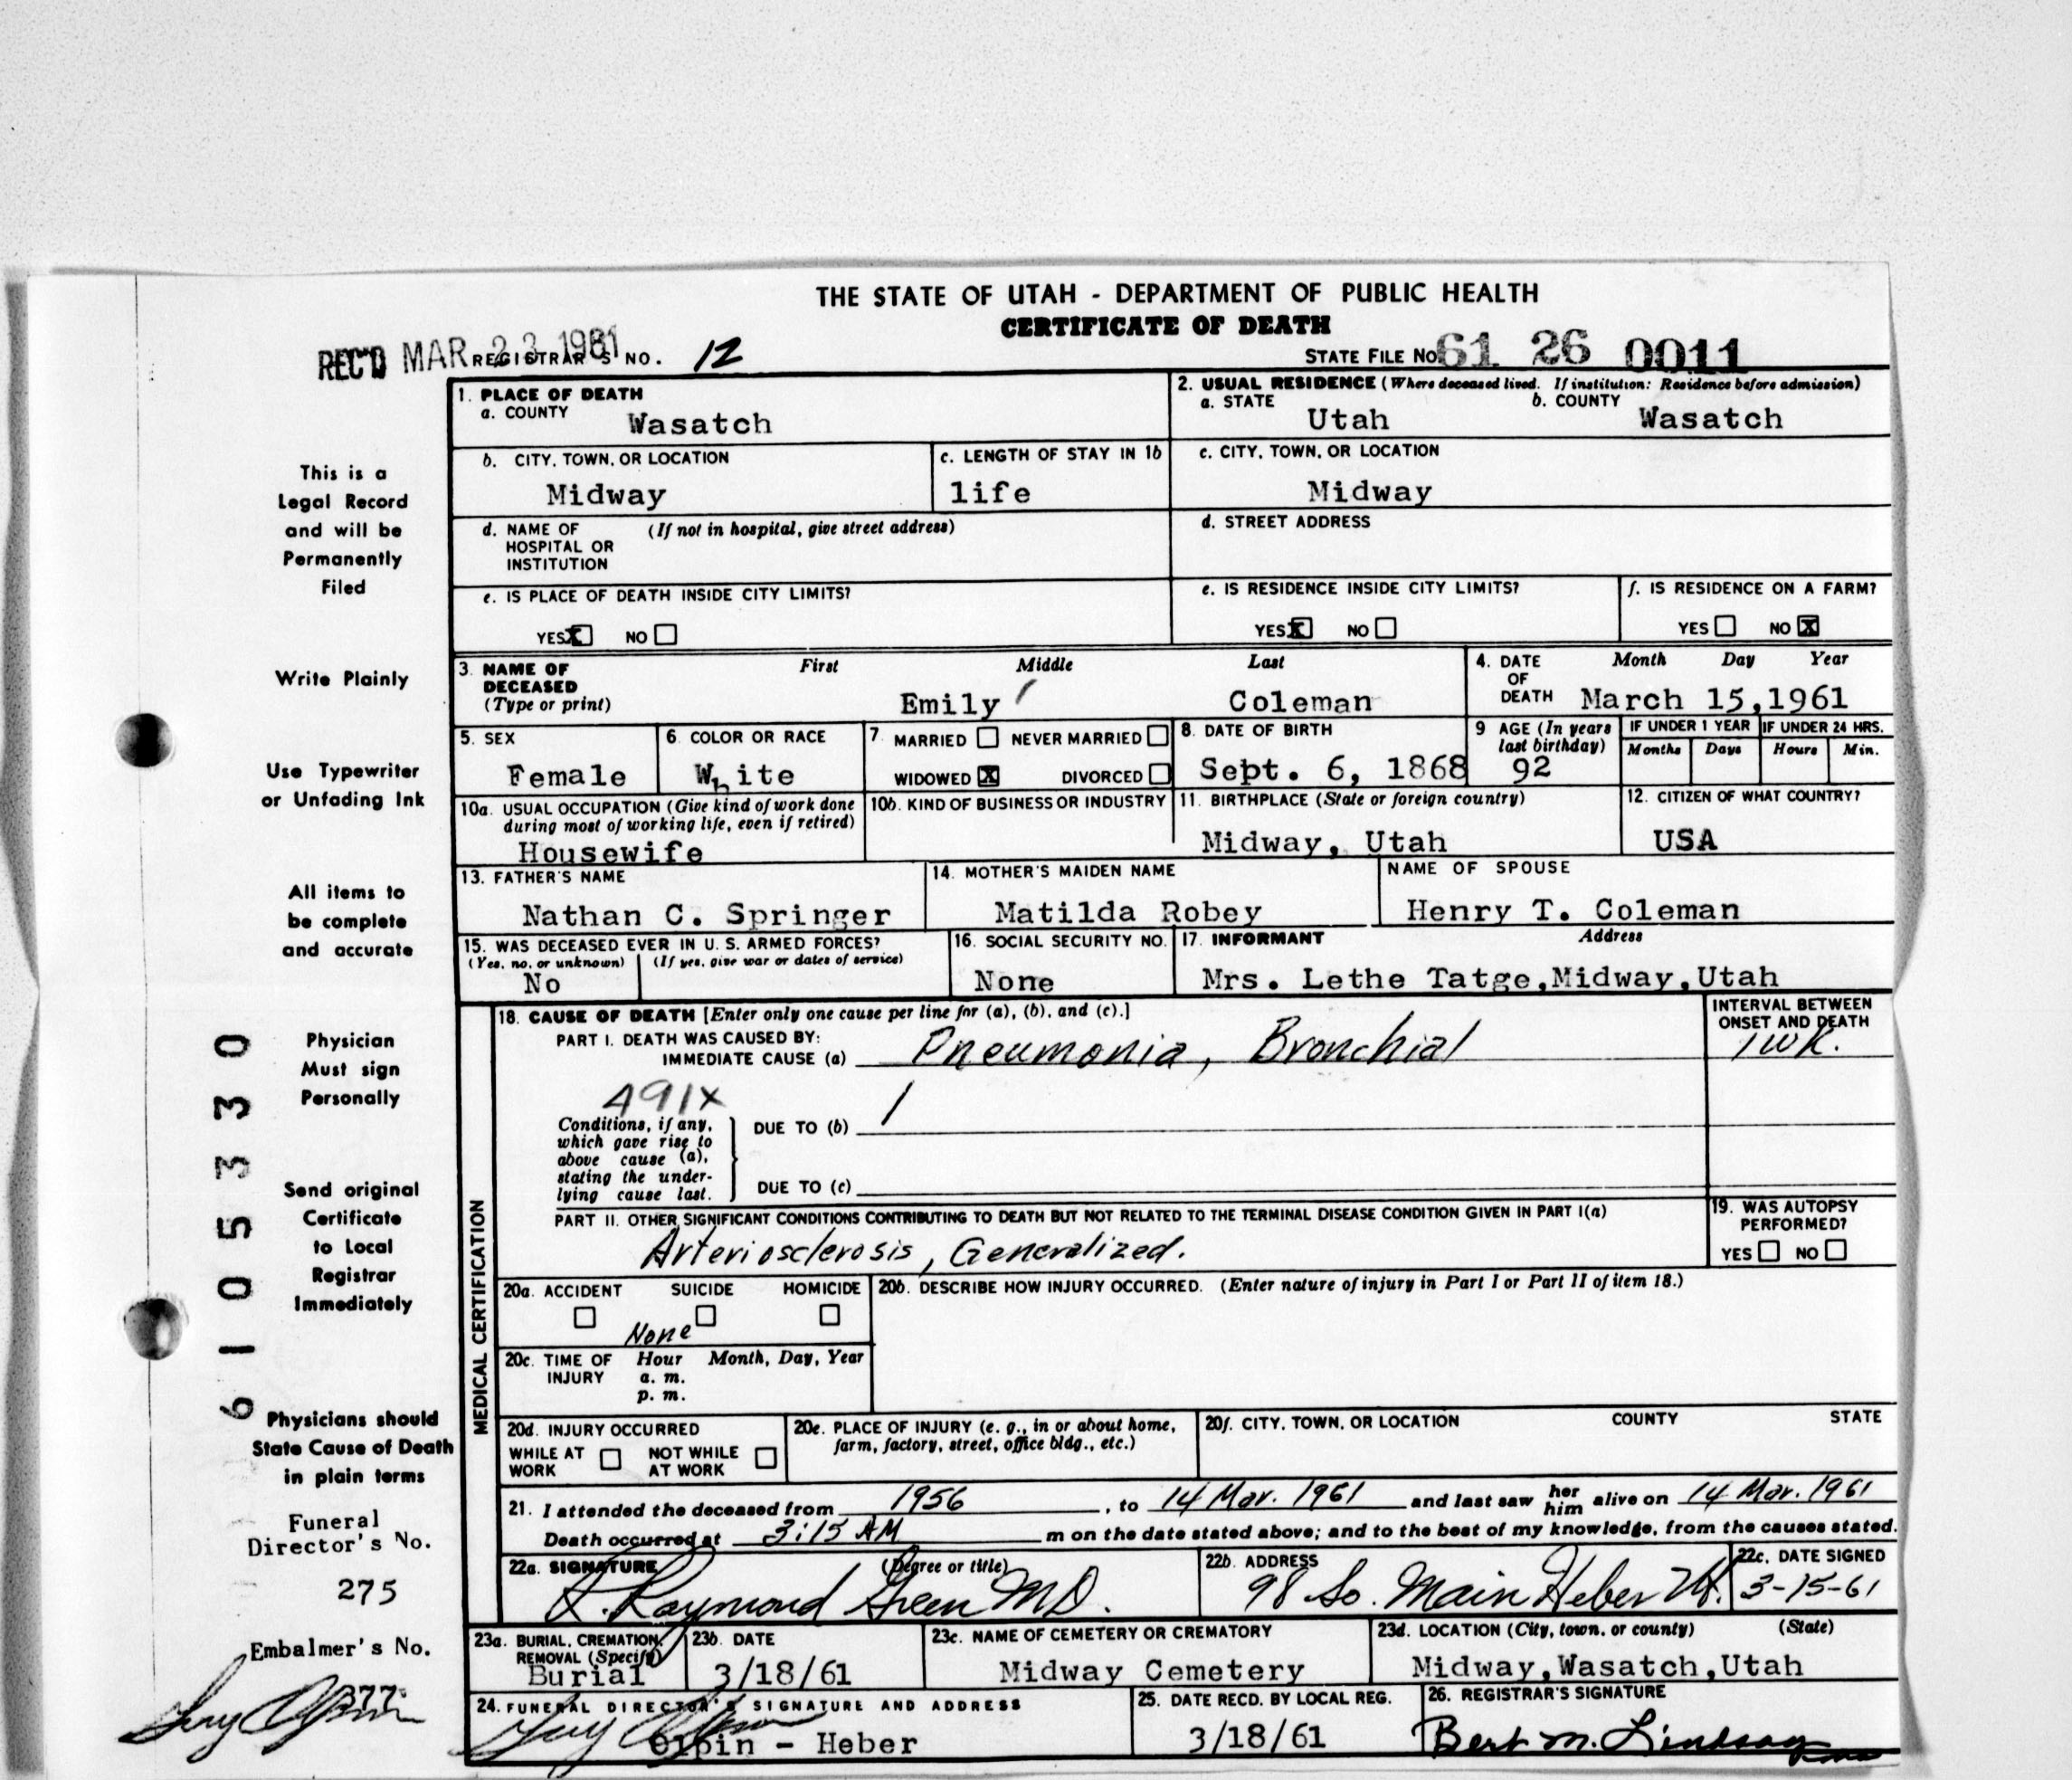 THE STATE OF UTAH - DEPARTMENT OF PUBLIC HEALTH
CERTIFICATE OF DEATH
REC'D MAR 23 1961 REGISTRAR'S NO. 12 STATE FILE No 61 26 0011
1. PLACE OF DEATH
a. COUNTY Wasatch
2. USUAL RESIDENCE (Where deceased lived. If institution: Residence before admission)
a. STATE Utah b. COUNTY Wasatch
b. CITY, TOWN, OR LOCATION Midway
c. LENGTH OF STAY IN 1b life
c. CITY, TOWN, OR LOCATION Midway
d. NAME OF HOSPITAL OR INSTITUTION (If not in hospital, give street address)
d. STREET ADDRESS
e. IS PLACE OF DEATH INSIDE CITY LIMITS?
YES X NO
e. IS RESIDENCE INSIDE CITY LIMITS?
YES X NO
f. IS RESIDENCE ON A FARM?
YES NO X
3. NAME OF DECEASED (Type or print) First Middle Last
Emily Coleman
4. DATE OF DEATH Month Day Year
March 15,1961
5. SEX Female
6. COLOR OR RACE White
7. MARRIED NEVER MARRIED
WIDOWED X DIVORCED
8. DATE OF BIRTH Sept. 6, 1868
9 AGE (In years last birthday) 92
IF UNDER 1 YEAR Months Days
IF UNDER 24 HRS. Hours Min.
10a. USUAL OCCUPATION (Give kind of work done during most of working life, even if retired)
Housewife
10b. KIND OF BUSINESS OR INDUSTRY
11. BIRTHPLACE (State or foreign country)
Midway, Utah
12. CITIZEN OF WHAT COUNTRY?
USA
13. FATHER'S NAME
Nathan C. Springer
14. MOTHER'S MAIDEN NAME
Matilda Robey
NAME OF SPOUSE
Henry T. Coleman
15. WAS DECEASED EVER IN U. S. ARMED FORCES?
(Yes, no, or unknown) (If yes, give war or dates of service)
No
16. SOCIAL SECURITY NO.
None
17. INFORMANT Address
Mrs. Lethe Tatge,Midway,Utah
MEDICAL CERTIFICATION
18. CAUSE OF DEATH [Enter only one cause per line for (a), (b), and (c).]
INTERVAL BETWEEN ONSET AND DEATH
PART I. DEATH WAS CAUSED BY:
IMMEDIATE CAUSE (a) Pneumonia, Bronchial 1 wk.
491X
Conditions, if any, which gave rise to above cause (a), stating the underlying cause last.
DUE TO (b)
DUE TO (c)
PART II. OTHER SIGNIFICANT CONDITIONS CONTRIBUTING TO DEATH BUT NOT RELATED TO THE TERMINAL DISEASE CONDITION GIVEN IN PART I(a)
Arteriosclerosis, Generalized.
19. WAS AUTOPSY PERFORMED?
YES NO
20a. ACCIDENT SUICIDE HOMICIDE
None
20b. DESCRIBE HOW INJURY OCCURRED. (Enter nature of injury in Part I or Part II of item 18.)
20c. TIME OF INJURY Hour Month, Day, Year
a. m.
p. m.
20d. INJURY OCCURRED
WHILE AT WORK NOT WHILE AT WORK
20e. PLACE OF INJURY (e. g., in or about home, farm, factory, street, office bldg., etc.)
20f. CITY, TOWN, OR LOCATION COUNTY STATE
21. I attended the deceased from 1956, to 14 Mar. 1961 and last saw her him alive on 14 Mar. 1961
Death occurred at 3:15 AM m on the date stated above; and to the best of my knowledge, from the causes stated.
22a. SIGNATURE (Degree or title)
R. Raymond Green MD.
22b. ADDRESS
98 So. Main Heber Ut.
22c. DATE SIGNED
3-15-61
23a. BURIAL, CREMATION, REMOVAL (Specify)
Burial
23b. DATE
3/18/61
23c. NAME OF CEMETERY OR CREMATORY
Midway Cemetery
23d. LOCATION (City, town, or county) (State)
Midway,Wasatch,Utah
24. FUNERAL DIRECTOR'S SIGNATURE AND ADDRESS
Olpin - Heber
25. DATE RECD. BY LOCAL REG.
3/18/61
26. REGISTRAR'S SIGNATURE
Bert M. Lindsay
This is a
Legal Record
and will be
Permanently
Filed
Write Plainly
Use Typewriter
or Unfading Ink
All items to
be complete
and accurate
Physician
Must sign
Personally
Send original
Certificate
to Local
Registrar
Immediately
Physicians should
State Cause of Death
in plain terms
6105330
Funeral
Director's No.
275
Embalmer's No.
377